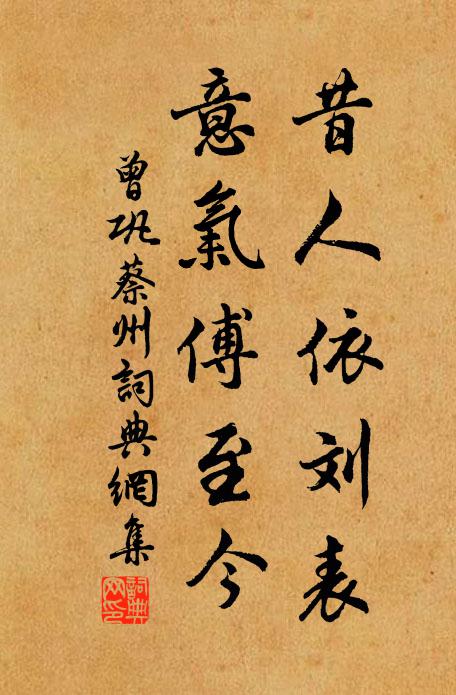 昔人依刘表
意氣傅至今
曾巩蔡州詞典網集
詞典网印